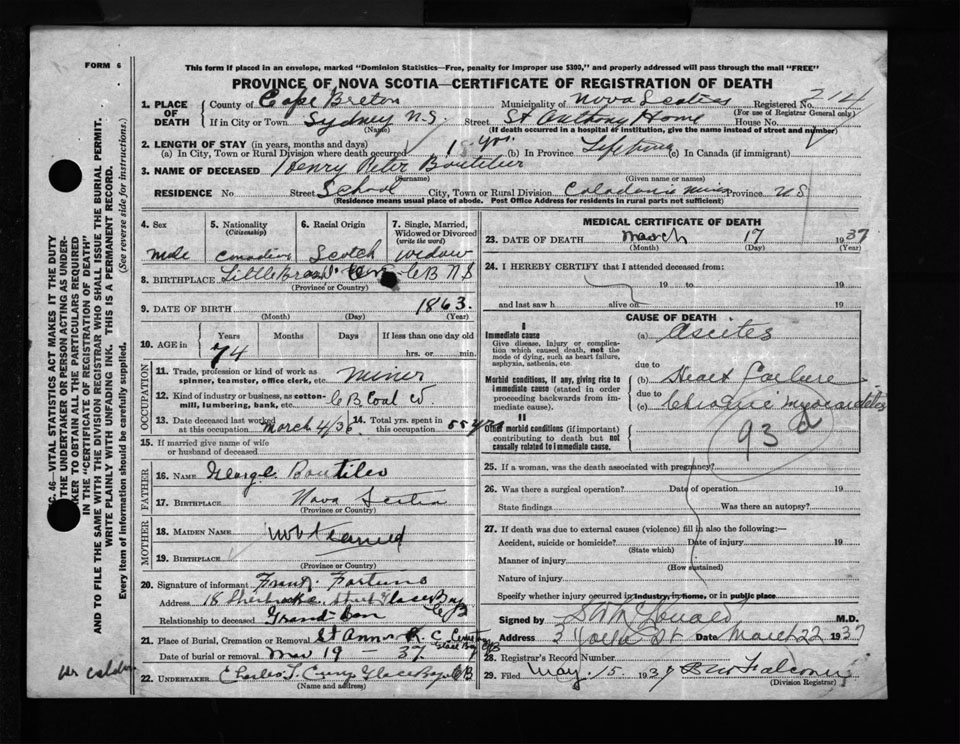 FORM 6
This form if placed in an envelope, marked "Dominion Statistics—Free, penalty for improper use $300," and properly addressed will pass through the mail "FREE"
PROVINCE OF NOVA SCOTIA—CERTIFICATE OF REGISTRATION OF DEATH
1. PLACE OF DEATH
County of Cape Breton Municipality of Nova Scotia Registered No. 214
(For use of Registrar General only)
If in City or Town Sydney N.S. Street St Anthony Home House No.
(Name) (If death occurred in a hospital or institution, give the name instead of street and number)
2. LENGTH OF STAY (in years, months and days)
(a) In City, Town or Rural Division where death occurred yrs. (b) In Province Lifetime (c) In Canada (if immigrant)
3. NAME OF DECEASED Henry Peter Boutilier
(Surname) (Given name or names)
RESIDENCE No. Street School City, Town or Rural Division Caledonia Mines Province NS
(Residence means usual place of abode. Post Office Address for residents in rural parts not sufficient)
4. Sex male
5. Nationality (Citizenship) Canadian
6. Racial Origin Scotch
7. Single, Married, Widowed or Divorced (write the word) widow
8. BIRTHPLACE Little Bras d' C B N S
(Province or Country)
9. DATE OF BIRTH 1863.
(Month) (Day) (Year)
10. AGE in Years Months Days If less than one day old
74 hrs. or min.
OCCUPATION
11. Trade, profession or kind of work as spinner, teamster, office clerk, etc. miner
12. Kind of industry or business, as cotton-mill, lumbering, bank, etc. C B Coal
13. Date deceased last worked at this occupation March 4/36
14. Total yrs. spent in this occupation 55 yrs
15. If married give name of wife or husband of deceased
FATHER
16. NAME George Boutilier
17. BIRTHPLACE Nova Scotia
(Province or Country)
MOTHER
18. MAIDEN NAME not learned
19. BIRTHPLACE
(Province or Country)
20. Signature of informant Frank Fortune
Address 18 Sherbrooke Street Glace Bay CB
Relationship to deceased Grand-son
21. Place of Burial, Cremation or Removal St Anns R. C. Cemetery Glace Bay CB
Date of burial or removal Mar 19 - 37
22. UNDERTAKER Charles T. Curry Glace Bay CB
(Name and address)
MEDICAL CERTIFICATE OF DEATH
23. DATE OF DEATH March 17 1937
(Month) (Day) (Year)
24. I HEREBY CERTIFY that I attended deceased from:
19 to 19
and last saw h alive on 19
CAUSE OF DEATH
I
Immediate cause
Give disease, injury or complication which caused death, not the mode of dying, such as heart failure, asphyxia, asthenia, etc.
(a) Ascites
due to
Morbid conditions, if any, giving rise to immediate cause (stated in order proceeding backwards from immediate cause).
(b) Heart Failure
due to
(c) Chronic myocarditis
II
Other morbid conditions (if important) contributing to death but not causally related to immediate cause.
93
25. If a woman, was the death associated with pregnancy?
26. Was there a surgical operation? Date of operation 19
State findings Was there an autopsy?
27. If death was due to external causes (violence) fill in also the following:
Accident, suicide or homicide? Date of injury 19
(State which)
Manner of injury
(How sustained)
Nature of injury
Specify whether injury occurred in industry, in home, or in public place
Signed by M.D.
Address Date March 22 1937
28. Registrar's Record Number
29. Filed May. 15. 1937
(Division Registrar)
C. 46—VITAL STATISTICS ACT MAKES IT THE DUTY
THE UNDERTAKER OR PERSON ACTING AS UNDER-
KER TO OBTAIN ALL THE PARTICULARS REQUIRED
IN THE "CERTIFICATE OF REGISTRATION OF DEATH"
AND TO FILE THE SAME WITH THE DIVISION REGISTRAR WHO SHALL ISSUE THE BURIAL PERMIT.
WRITE PLAINLY WITH UNFADING INK. THIS IS A PERMANENT RECORD.
Every item of information should be carefully supplied. (See reverse side for instructions.)